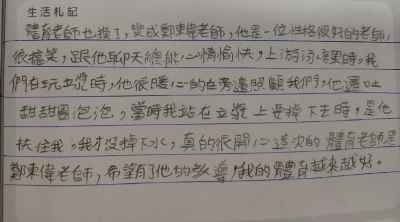 生活札記
體育老師也換了,變成鄭東偉老師,他是一位性格很好的老師,
很搞笑,跟他聊天總能心情愉快,上游泳課時,我
們在玩立漿時,他很暖心的在旁邊照顧我們,他還吐
甜甜圈泡泡,當時我站在立漿上要掉下去時,是他
扶住我,我才沒掉下水,真的很開心這次的體育老師是
鄭東偉老師,希望有了他的教導,我的體育越來越好。